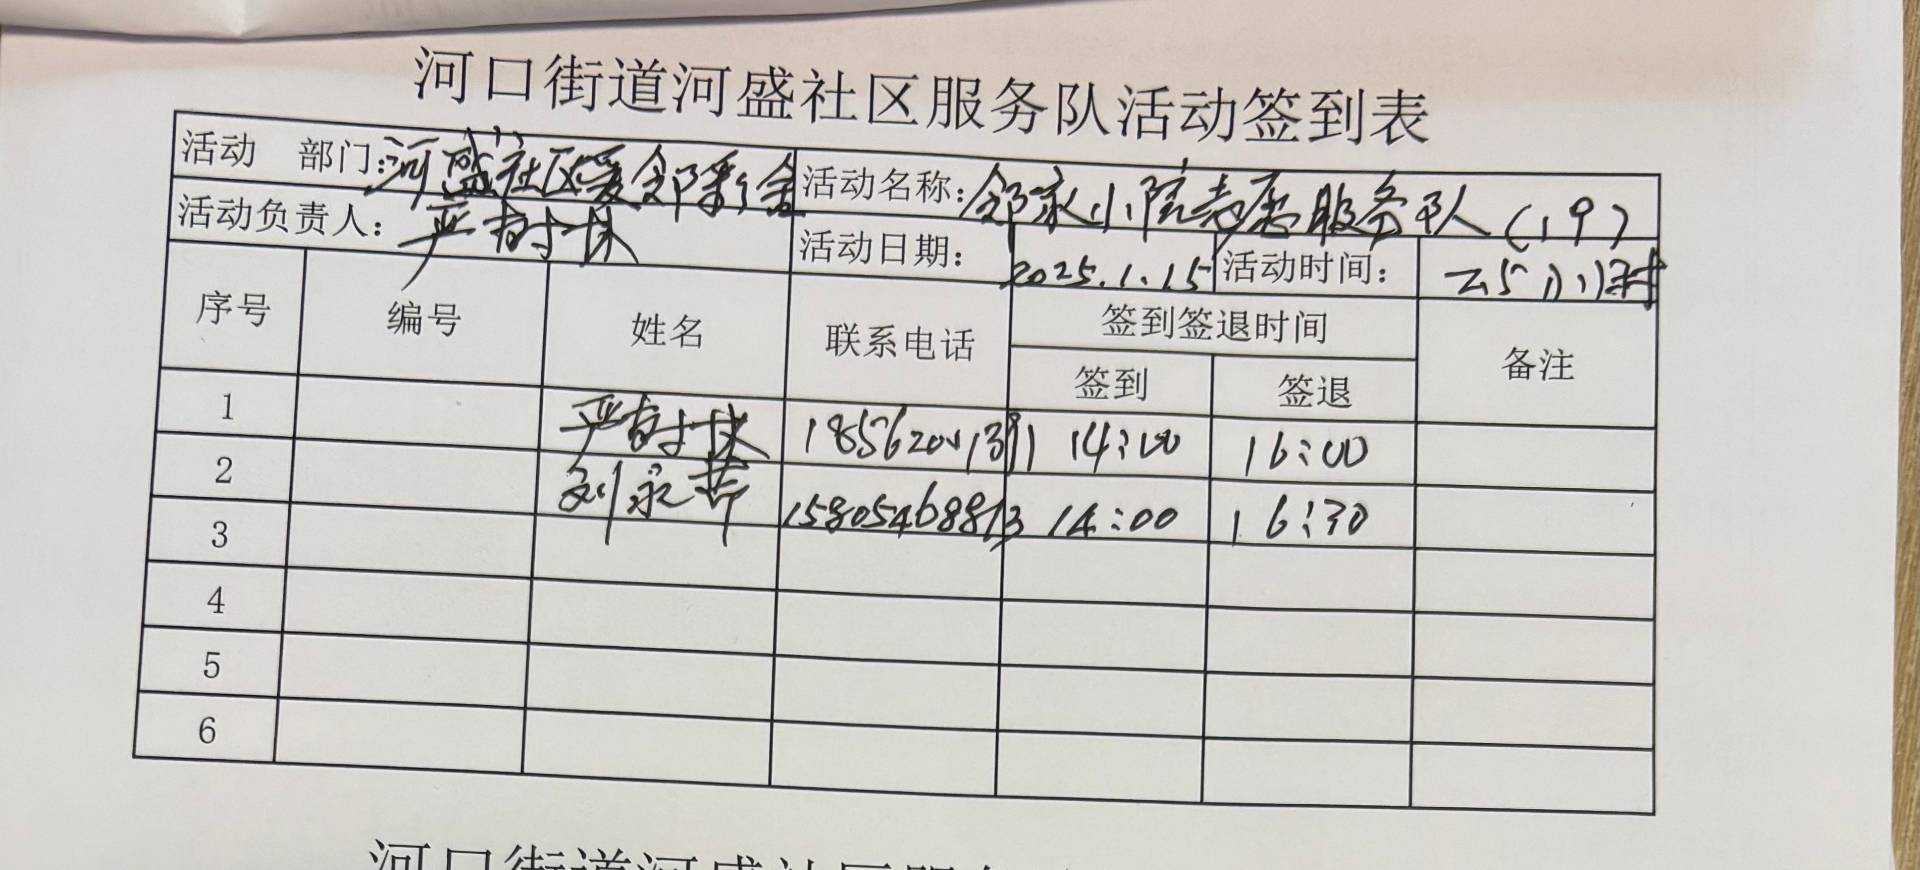 河口街道河盛社区服务队活动签到表
活动 部门：河盛社区爱邻彩金 活动名称：邻家小院志愿服务队（19）
活动负责人：严 活动日期：2025.1.15 活动时间：2.5小时
序号 编号 姓名 联系电话 签到签退时间 备注
签到 签退
1 14:00 16:00
2 刘永 15805468813 14:00 16:30
3
4
5
6